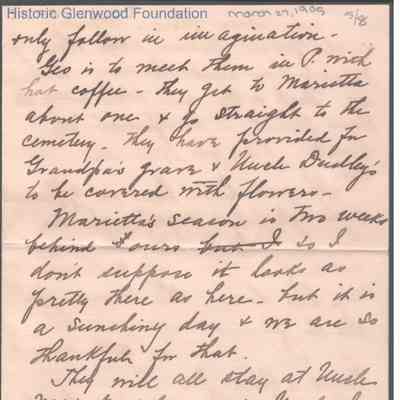 Historic Glenwood Foundation
March 27, 1905
5/8
only follow in imagination -
Geo is to meet them in P. with
hot coffee - They get to Marietta
about one & go straight to the
cemetery. They have provided for
Grandpa's grave & Uncle Dudley's
to be covered with flowers -
Marietta's season is two weeks
behind ours but I so I
dont suppose it looks as
pretty there as here - but it is
a sunshiny day & we are so
thankful for that.
They will all stay at Uncle